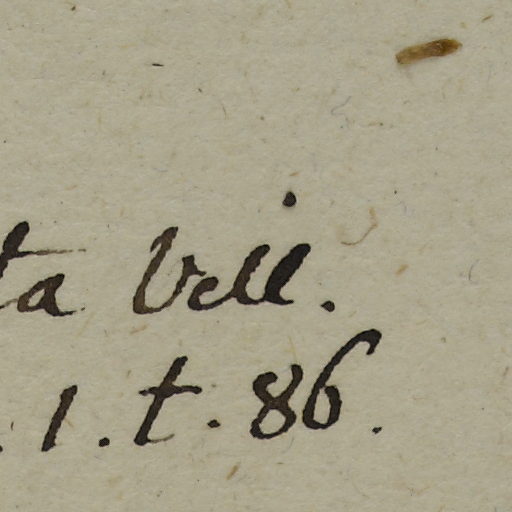 ta Vell.
. 1. t. 86.